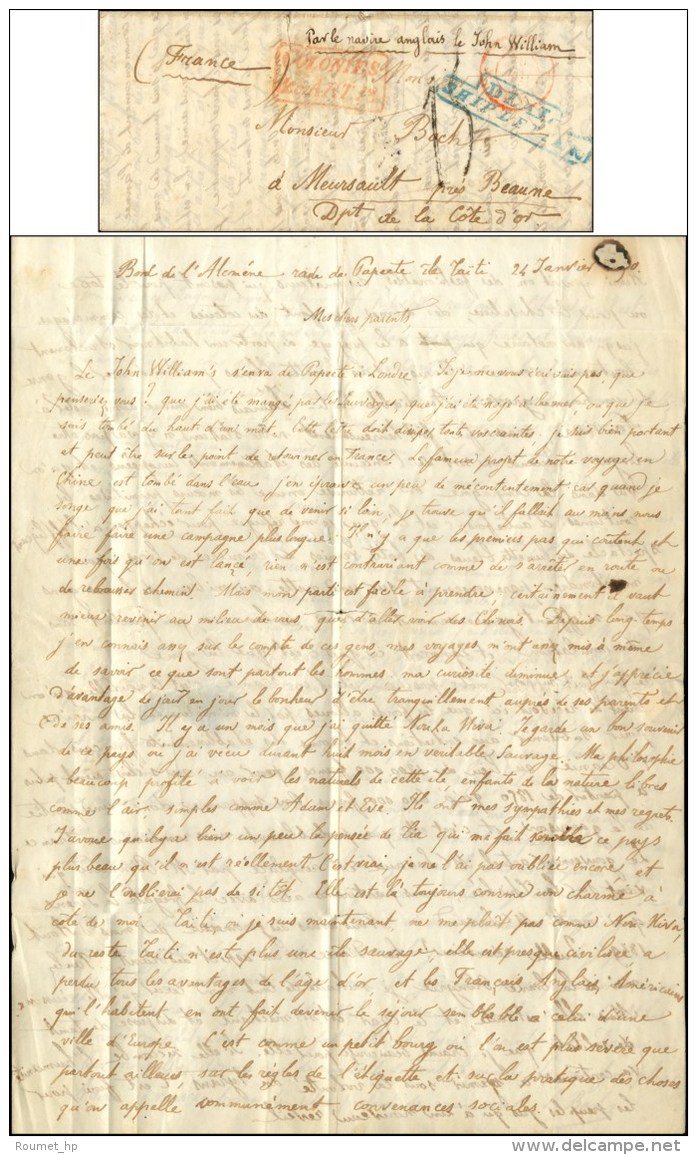 Par le navire anglais le John William
(France)
COLONIES
DEAL
SHIP LETTER
Monsieur Boch
à Meursault près Beaune
Dpt de la Côte d'or
Bord de l'Alcmène rade de Papeete île Taïti 24 Janvier
Mes chers parents
Le John William's s'en va de Papeete à Londre Si je ne vous écrivais pas, que
penseriez vous? que j'ai été mangé par les sauvages, que j'ai été noyé ou que je
suis tombé du haut d'un mât. Cette lettre doit dissiper toutes vos craintes, je suis bien portant
et peut être sur le point de retourner en France. Le fameux projet de notre voyage en
Chine est tombé dans l'eau j'en éprouve un peu de mécontentement, car quand je
songe que j'ai tant fait que de venir si loin, je trouve qu'il fallait au moins nous
faire faire une campagne plus longue. Il n'y a que les premiers pas qui coûtent et
une fois qu'on est lancé rien n'est contrariant comme de s'arrêter en route ou
de rebrousser chemin. Mais mon parti est facile à prendre certainement il vaut
mieux revenir au milieu de vous, que d'aller voir des Chinois. Depuis long-temps
j'en connais assez sur le compte de ces gens, mes voyages m'ont assez mis à même
de savoir ce que sont partout les hommes, ma curiosité diminue, et j'apprécie
d'avantage de jour en jour le bonheur d'être tranquillement auprès de ses parents et
de ses amis. Il y a un mois que j'ai quitté Nouka Hiva Je garde un bon souvenir
de ce pays où j'ai vécu durant huit mois en véritable Sauvage. Ma philosophie
a beaucoup profité à voir les naturels de cette île enfants de la nature libres
comme l'air simples comme Adam et Eve. Ils ont mes sympathies et mes regrets
J'avoue qu'il y a bien un peu la pensée de Tia qui me fait ce pays
plus beau qu'il n'est réellement. C'est vrai, je ne l'ai pas oubliée encore, et
je ne l'oublierai pas de si tôt Elle est là toujours comme un charme à
côté de moi. Taïti où je suis maintenant ne me plait pas comme Nou Hiva,
du reste Taïti n'est plus une île sauvage, elle est presque civilisée a
perdu tous les avantages de l'âge d'or et les Français Anglais Américains
qui l'habitent en ont fait devenir le séjour semblable à celui d'une
ville d'Europe C'est comme un petit bourg où l'on est plus sévère que
partout ailleurs, sur les règles de l'étiquette et sur la pratique des choses
qu'on appelle communément convenances sociales.
Roumet_hp
delcampe.net